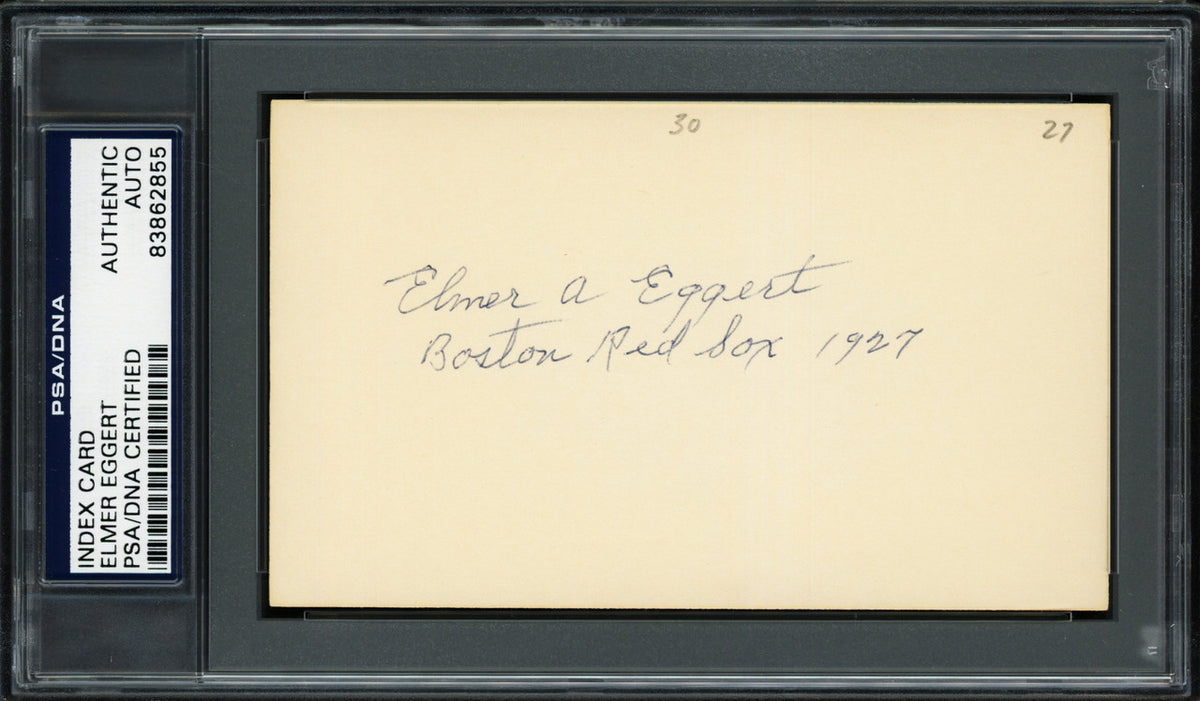 PSA/DNA
INDEX CARD
ELMER EGGERT
PSA/DNA CERTIFIED
AUTHENTIC
AUTO
83862855
30
27
Elmer A Eggert
Boston Red Sox 1927